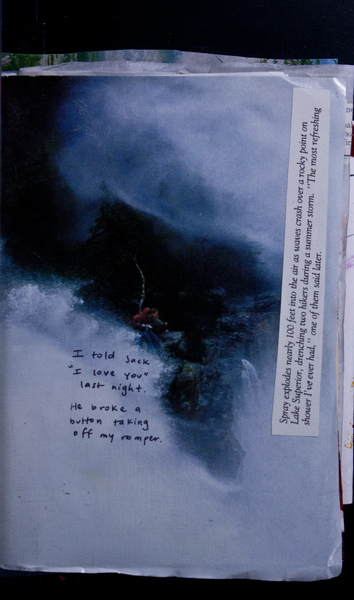 I told Jack
"I love you"
last night.
He broke a
button taking
off my romper.
Spray explodes nearly 100 feet into the air as waves crash over a rocky point on
Lake Superior, drenching two hikers during a summer storm. "The most refreshing
shower I've ever had," one of them said later.